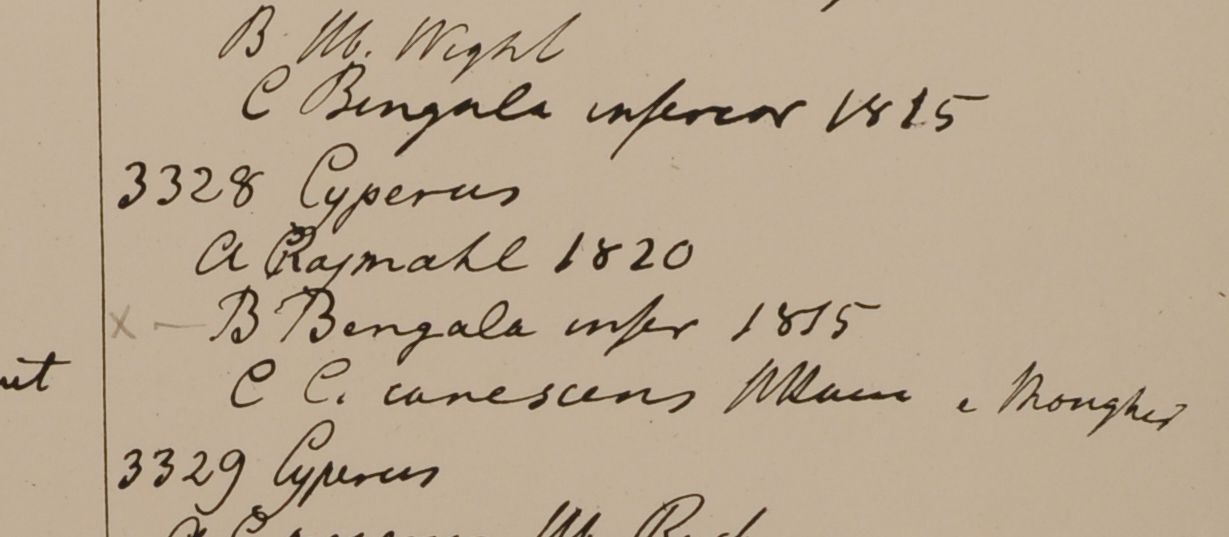 B Hb. Wight
C Bengala inferior 1815
3328 Cyperus
A Rajmahl 1820
x — B Bengala infer 1815
ut
C C. canescens Hb Ham e Monghir
3329 Cyperus